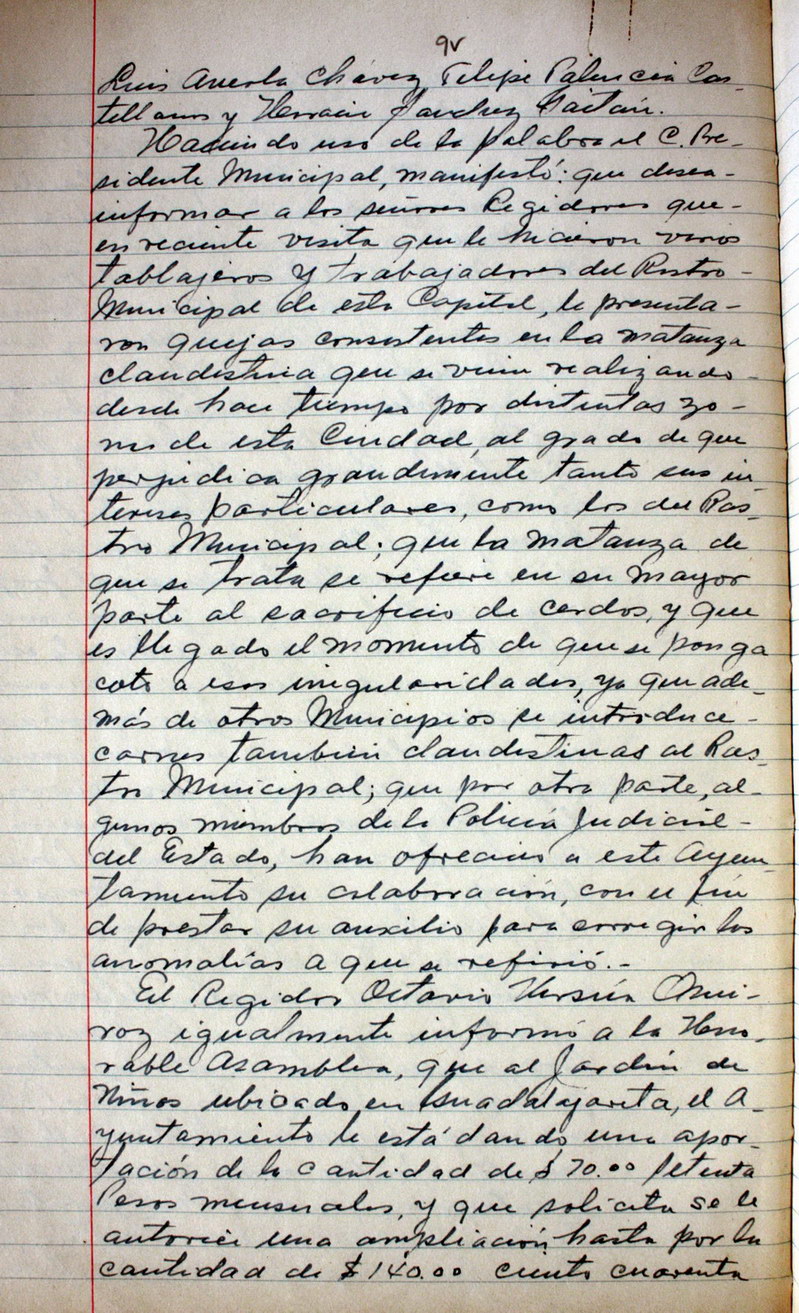 9v
Luis Acosta Chávez Felipe Palencia Cas-
tellanos y Horacio Sánchez Gaitán.
Haciendo uso de la palabra el C. Pre-
sidente Municipal, manifestó: que desea-
informar a los señores Regidores que-
en reciente visita que le hicieron varios
tablajeros y trabajadores del Rastro-
Municipal de esta Capital, le presenta-
ron quejas consistentes en la matanza
clandestina que se viene realizando-
desde hace tiempo por distintas zo-
nas de esta Ciudad, al grado de que
perjudica grandemente tanto sus in-
tereses particulares, como los del Ras-
tro Municipal; que la matanza de
que se trata se refiere en su mayor
parte al sacrificio de cerdos, y que
es llegado el momento de que se ponga
coto a esas irregularidades, ya que ade-
más de otros Municipios se introduce-
carnes también clandestinas al Ras-
tro Municipal; que por otra parte, al-
gunos miembros de la Policía Judicial-
del Estado, han ofrecido a este Ayun-
tamiento su colaboración, con el fin
de prestar su auxilio para corregir las
anomalías a que se refirió.-
El Regidor Octavio Qui-
roz igualmente informó a la Hono-
rable Asamblea, que al Jardín de
Niños ubicado en Guadalajarita, el A-
yuntamiento le está dando una apor-
tación de la cantidad de $70.00 Setenta
Pesos mensuales, y que solicita se le
autorice una ampliación hasta por la
cantidad de $140.00 ciento cuarenta